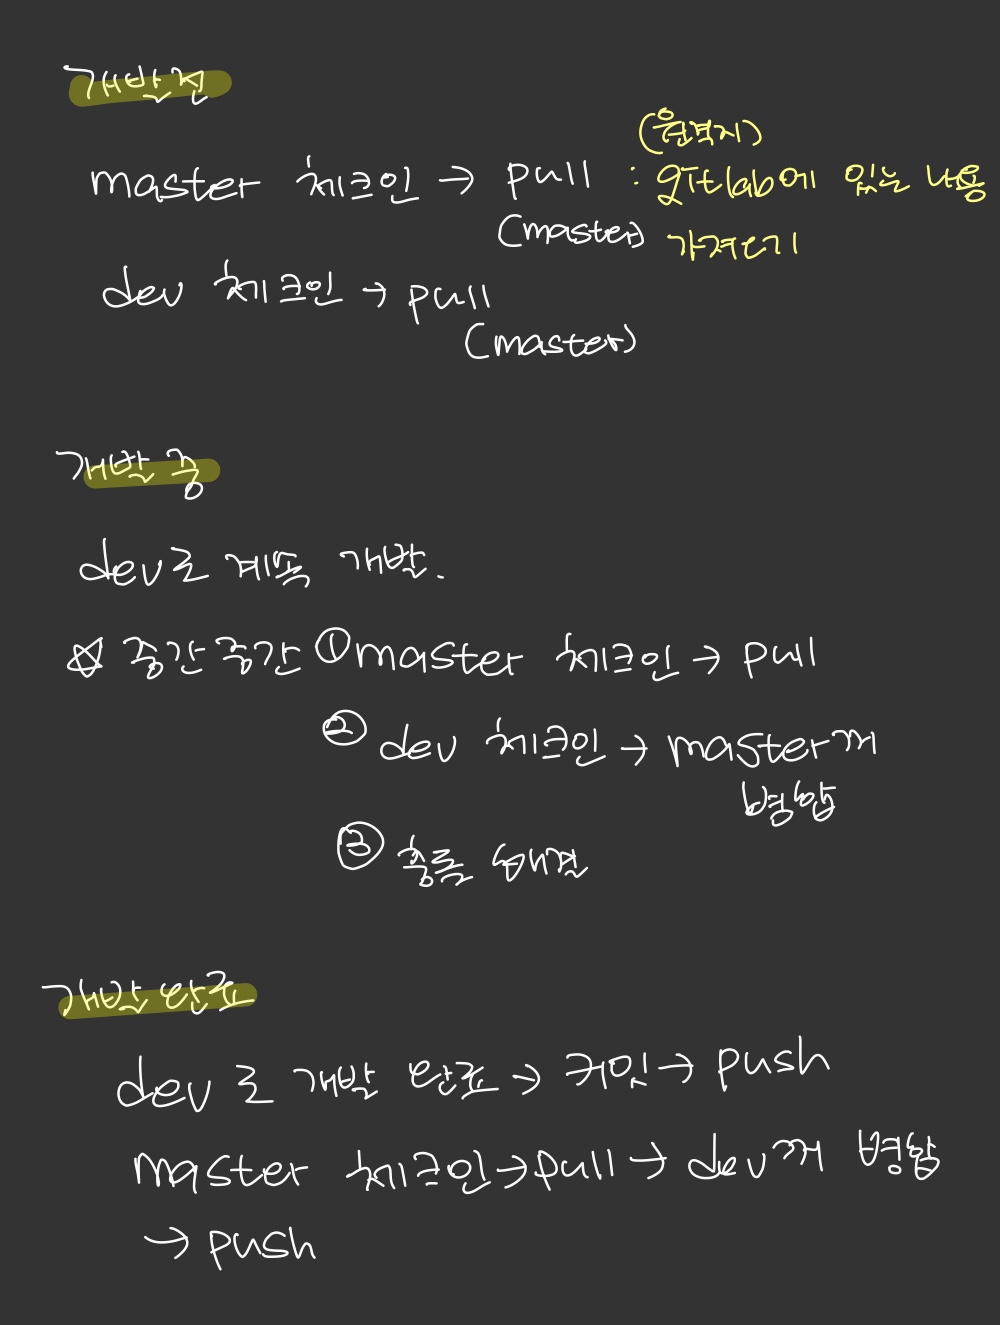 개발전
(원격지)
master 체크인 → pull : gitlab에 있는 내용
(master) 가져오기
dev 체크인 → pull
(master)
개발 중
dev로 계속 개발.
☆ 중간중간 ① master 체크인 → pull
② dev 체크인 → master꺼
병합
③ 충돌 해결
개발 완료
dev로 개발 완료 → 커밋 → push
master 체크인 → pull → dev꺼 병합
→ push